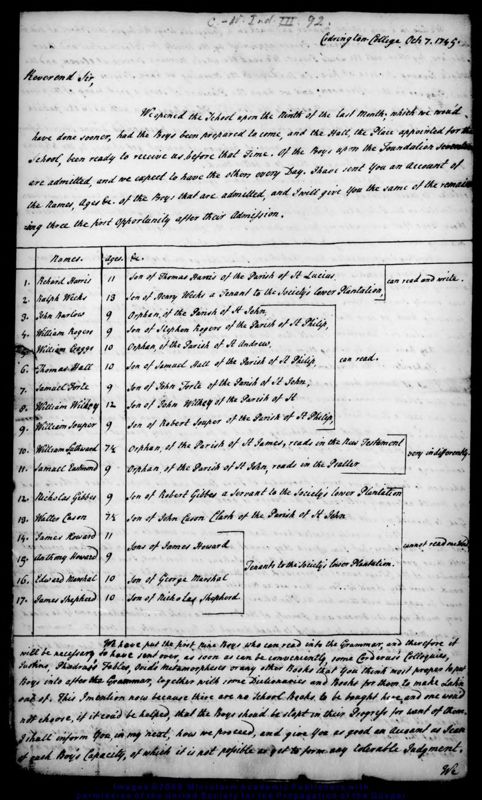 C.-W. Ind. III. 92.
Codrington College Oct. 7. 1745.
Reverend Sir,
We opened the School upon the Ninth of the last Month, which we would
have done sooner, had the Boys been prepared to come, and the Hall, the Place appointed for the
School, been ready to receive us before that Time. Of the Boys upon the Foundation Seventeen
are admitted, and we expect to have the others every Day. I have sent You an Account of
the Names, Ages &c. of the Boys that are admitted, and I will give You the same of the remain
ing three the first Opportunity after their Admission.
Names. Ages. &c.
1. Richard Harris 11 Son of Thomas Harris of the Parish of St Lucias
2. Ralph Weeks 13 Son of Henry Weeks a Tenant to the Society's lower Plantation, can read and write.
3. John Barlow 9 Orphan, of the Parish of St John,
4. William Rogers 9 Son of Stephen Rogers of the Parish of St Philip,
William 10 Orphan, of the Parish of St Andrew,
6. Thomas Hall 10 Son of Samuel Hall of the Parish of St Philip, can read.
7. Samuel Forte 9 Son of John Forte of the Parish of St John,
8. William Wilkey 12 Son of John Wilkey of the Parish of St
9. William Souper 9 Son of Robert Souper of the Parish of St Philip,
10. William 7½ Orphan, of the Parish of St James, reads in the New Testament
11. Samuel 9 Orphan, of the Parish of St John, reads in the Psalter very indifferently
12. Nicholas Gibbes 9 Son of Robert Gibbes a Servant to the Society's lower Plantation
13. Walter Cason 7½ Son of John Cason Clark of the Parish of St John
14. James Howard 11
15. Anthony Howard 9 Sons of James Howard cannot read
16. Edward Marshal 10 Son of George Marshal Tenants to the Society's lower Plantation.
17. James Shepherd 10 Son of Nicholas Shepherd
We have put the first nine Boys who can read into the Grammar, and therefore it
will be necessary to have sent over, as soon as can be conveniently, some Corderius' Colloquies,
Justins, Phædrus' Fables, Ovid's Metamorphoses or any other Books that You think most proper to put
Boys into after the Grammar, together with some Dictionaries and Books for them to make Latin
out of. This I mention now because there are no School Books to be bought here, and one would
not choose, if it could be helped, that the Boys should be stopt in their Progress for want of them.
I shall inform You in my next, how we proceed, and give You as good an Account as I can
of each Boy's Capacity, of which it is not possible as yet to form any tolerable Judgment.
We
Images ©2009 Microform Academic Publishers with
permission of the United Society for the Propagation of the Gospel